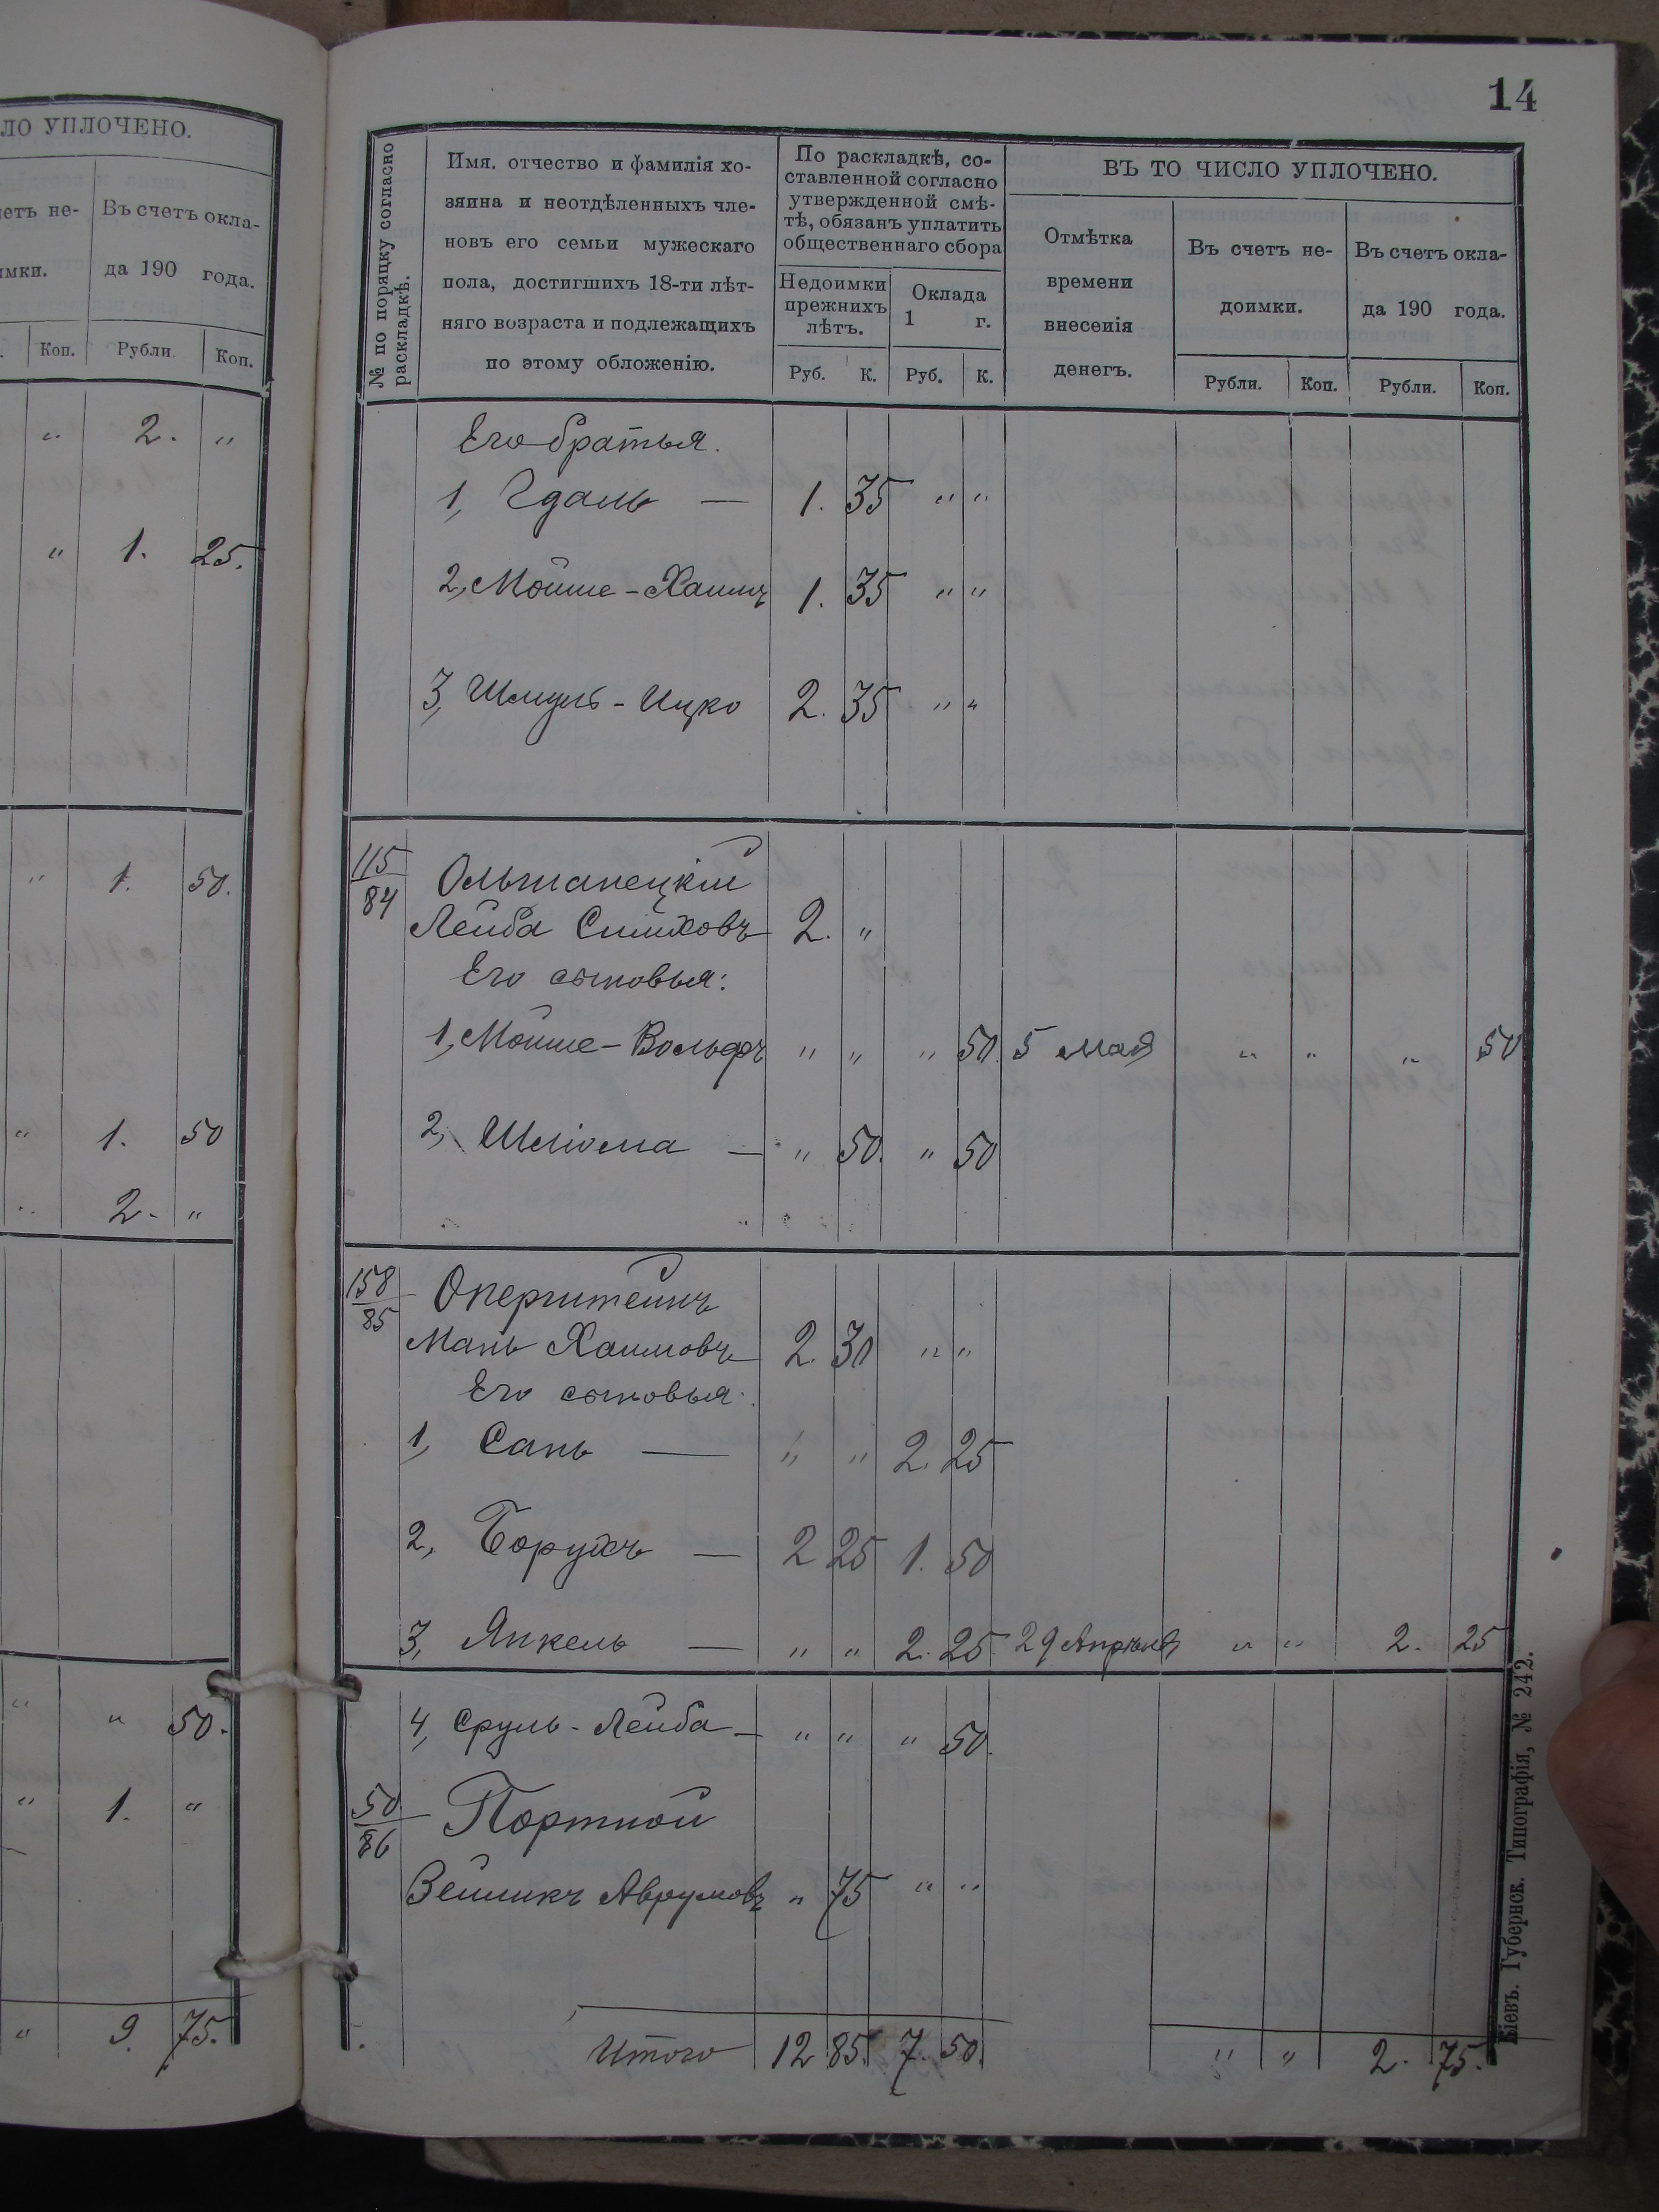 ЛО УПЛОЧЕНО.
четъ не-
Въ счетъ окла-
имки.
да 190 года.
Коп.
Рубли.
Коп.
" 2. "
" 1. 25.
" 1. 50.
" 1. 50
" 2. "
" " 50.
" 1. "
" 9. 75.
14
№ по поряцку согласно
раскладкѣ.
Имя, отчество и фамилія хо-
зяина и неотдѣленныхъ чле-
новъ его семьи мужескаго
пола, достигшихъ 18-ти лѣт-
няго возраста и подлежащихъ
по этому обложенію.
По раскладкѣ, со-
ставленной согласно
утвержденной смѣ-
тѣ, обязанъ уплатить
общественнаго сбора
Недоимки
прежнихъ
лѣтъ.
Оклада
1 г.
Руб. К. Руб. К.
ВЪ ТО ЧИСЛО УПЛОЧЕНО.
Отмѣтка
времени
внесенія
денегъ.
Въ счетъ не-
доимки.
Въ счетъ окла-
да 190 года.
Рубли. Коп. Рубли. Коп.
Его братья.
1, Гдаль — 1. 35 " "
2, Мойше-Хаимъ 1. 35 " "
3, Шмуль-Ицко 2. 35 " "
115/84 Ольшанецкій
Лейба Симховъ 2. "
Его сыновья:
1, Мойше-Вольфъ " " " 50. 5 мая " " " 50
2, Шліома — " 50. " 50
158/85 Оперштейнъ
Мань Хаимовъ 2. 30 " "
Его сыновья:
1, Сань — " " 2. 25
2, Борухъ — 2 25 1. 50
3, Янкель — " " 2. 25. 29 Апрѣля " " 2. 25
4, Сруль-Лейба — " " " 50.
50/86 Портной
Зейликъ Аврумовъ " 75 " "
Итого 12 85. 7. 50. " " 2. 75.
Кіевъ. Губернск. Типографія, № 242.